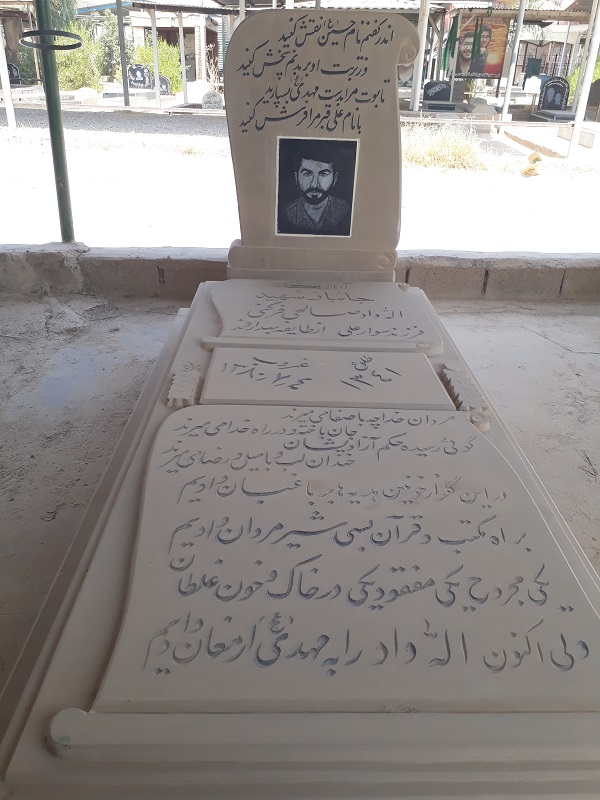 اندر کفنم نام حسین (ع) نقش کنید
وز تربت او بر بدنم پخش کنید
تابوت مرا بدست مهدی (عج) بسپارید
با نام علی قبر مرا فرش کنید
آرامگاه
جانباز شهید
اله داد صالحی فرخی
فرزند سوار علی از طایفه بیداروند
طلوع
۱۳۴۱
غروب
مردان خدا چه با صفا می میرند
جان باخته و در راه خدا می میرند
گوئی رسیده حکم آزادیشان
خندان لب و با میل و رضا می میرند
در این گلزار خونین هدیه ها بر باغبان دادیم
براه مکتب و قرآن بسی شیر مردان دادیم
یکی مجروح یکی مفقود یکی در خاک و خون غلطان
ولی اکنون اله داد را به مهدی (عج) ارمغان دادیم